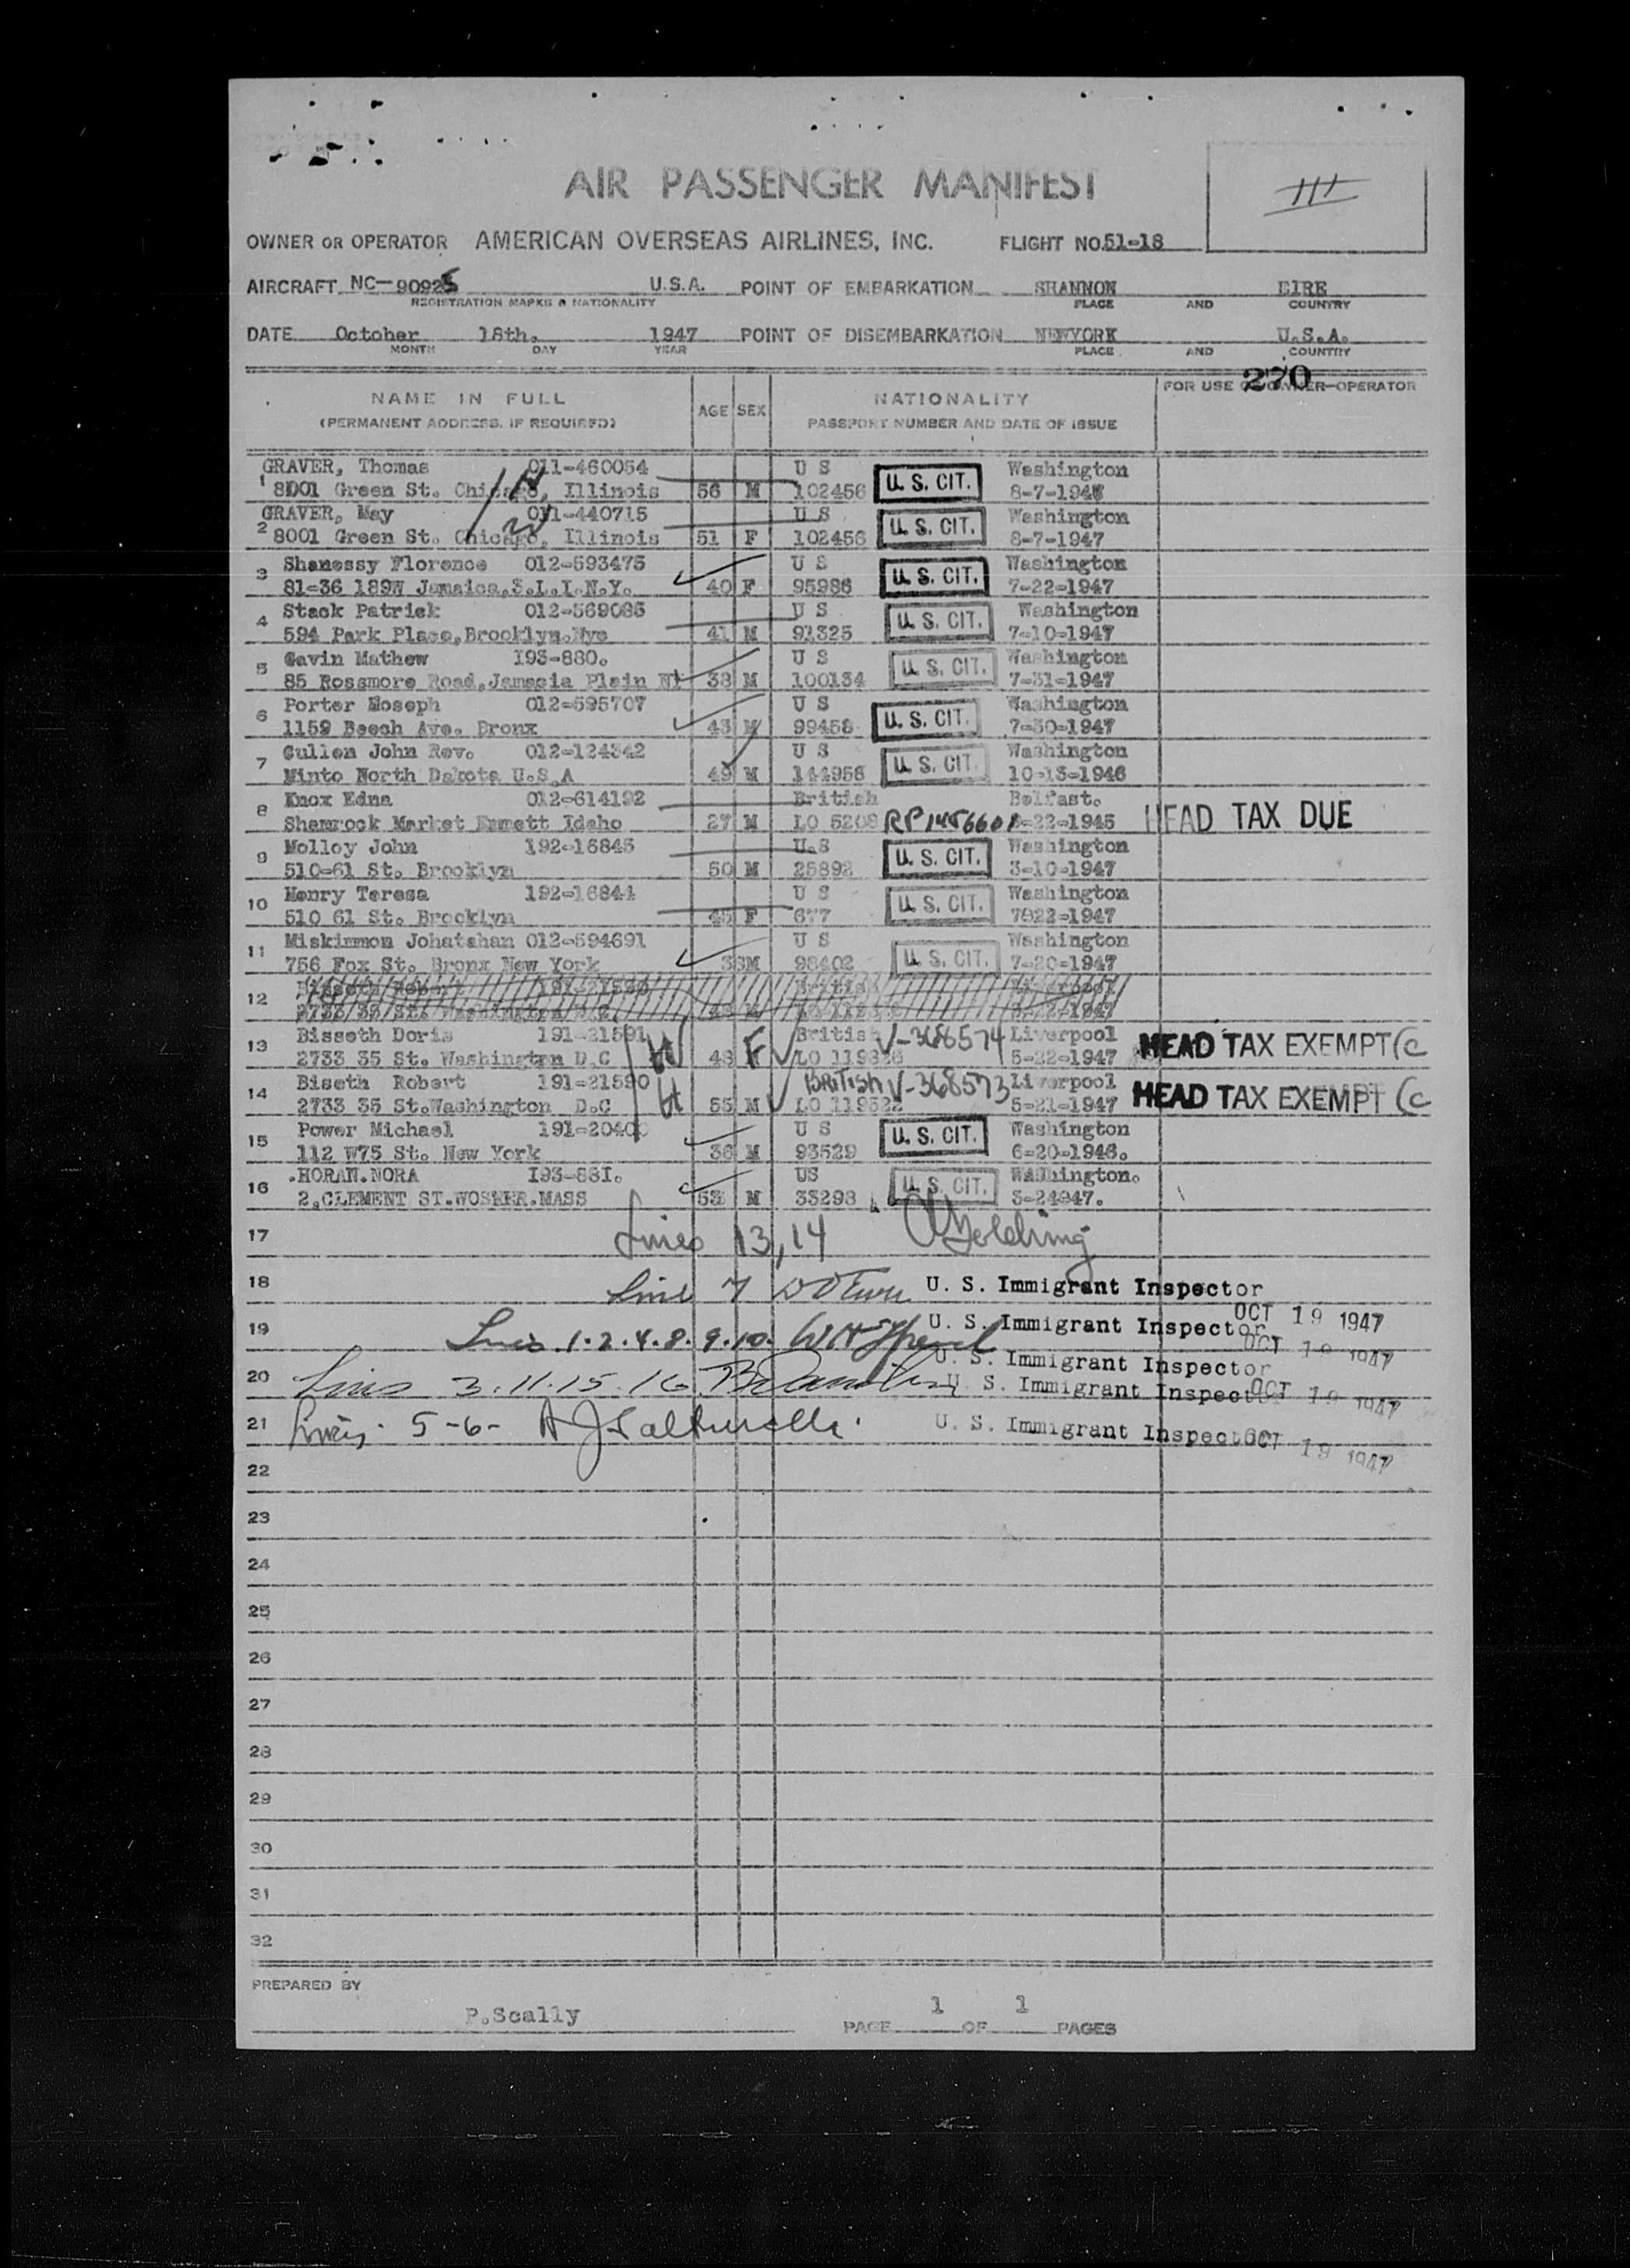 III
AIR PASSENGER MANIFEST
OWNER OR OPERATOR AMERICAN OVERSEAS AIRLINES, INC. FLIGHT NO. 51-18
AIRCRAFT NC-90925 U.S.A. POINT OF EMBARKATION SHANNON EIRE
REGISTRATION MARKS & NATIONALITY PLACE AND COUNTRY
DATE October 18th. 1947 POINT OF DISEMBARKATION NEWYORK U.S.A.
MONTH DAY YEAR PLACE AND COUNTRY
270
NAME IN FULL AGE SEX NATIONALITY FOR USE OF OWNER-OPERATOR
(PERMANENT ADDRESS, IF REQUIRED) PASSPORT NUMBER AND DATE OF ISSUE
GRAVER, Thomas 011-460054 U S Washington
1 8001 Green St. Chicago, Illinois 56 M 102456 U. S. CIT. 8-7-1947
GRAVER, May 011-440715 U S Washington
2 8001 Green St. Chicago, Illinois 51 F 102456 U. S. CIT. 8-7-1947
3 Shanessy Florence 012-593475 U S Washington
81-36 189W Jamaica,3.L.I.N.Y. 40 F 95986 U. S. CIT. 7-22-1947
4 Stack Patrick 012-569085 U S Washington
594 Park Place,Brooklyn.Nyc 41 M 91325 U. S. CIT. 7-10-1947
5 Gavin Mathew I93-880. U S Washington
85 Rossmore Road,Jamacia Plain 38 M 100134 U. S. CIT. 7-31-1947
6 Porter Moseph 012-595707 U S Washington
1159 Beech Ave. Bronx 43 M 99458 U. S. CIT. 7-30-1947
7 Cullen John Rev. 012-124342 U S Washington
Minto North Dakota U.S.A 49 M 144956 U. S. CIT. 10-13-1946
8 Knox Edna 012-614192 British Belfast.
Shamrock Market Emmett Idaho 27 M LO 5208 RP1456601 -22-1945 HEAD TAX DUE
9 Molloy John 192-16845 U.S Washington
510-61 St. Brooklyn 50 M 25892 U. S. CIT. 3-10-1947
10 Henry Teresa 192-16844 U S Washington
510 61 St. Brooklyn 45 F 677 U. S. CIT. 7922-1947
11 Miskimmon Johatahan 012-594691 U S Washington
756 Fox St. Bronx New York 38M 98402 U. S. CIT. 7-20-1947
12 Bisseth Robert British Liverpool
2733 35 St. Washington
13 Bisseth Doris 191-21591 British V-368574 Liverpool
2733 35 St. Washington D.C H 48 F LO 5-22-1947 HEAD TAX EXEMPT (C
14 Biseth Robert 191-21590 BRITISH V-368573 Liverpool
2733 35 St.Washington D.C H 55 M LO 5-21-1947 HEAD TAX EXEMPT (C
15 Power Michael 191-20400 U S Washington
112 W75 St. New York 36 M 93529 U. S. CIT. 6-20-1946.
16 .HORAN.NORA I93-88I. US WAShington.
2,CLEMENT ST.WOSTER.MASS 53 M 33298 U. S. CIT. 3-24947.
17 Lines 13,14 Golding
18 Line 7 U. S. Immigrant Inspector
OCT 19 1947
19 Lines 1.2.4.8.9.10. U. S. Immigrant Inspector
OCT 19 1947
U. S. Immigrant Inspector
20 Lines 3.11.15.16 U. S. Immigrant Inspector OCT 19 1947
21 Lines 5-6- U. S. Immigrant Inspector OCT 19 1947
22
23
24
25
26
27
28
29
30
31
32
PREPARED BY
P.Scally
PAGE 1 OF 1 PAGES